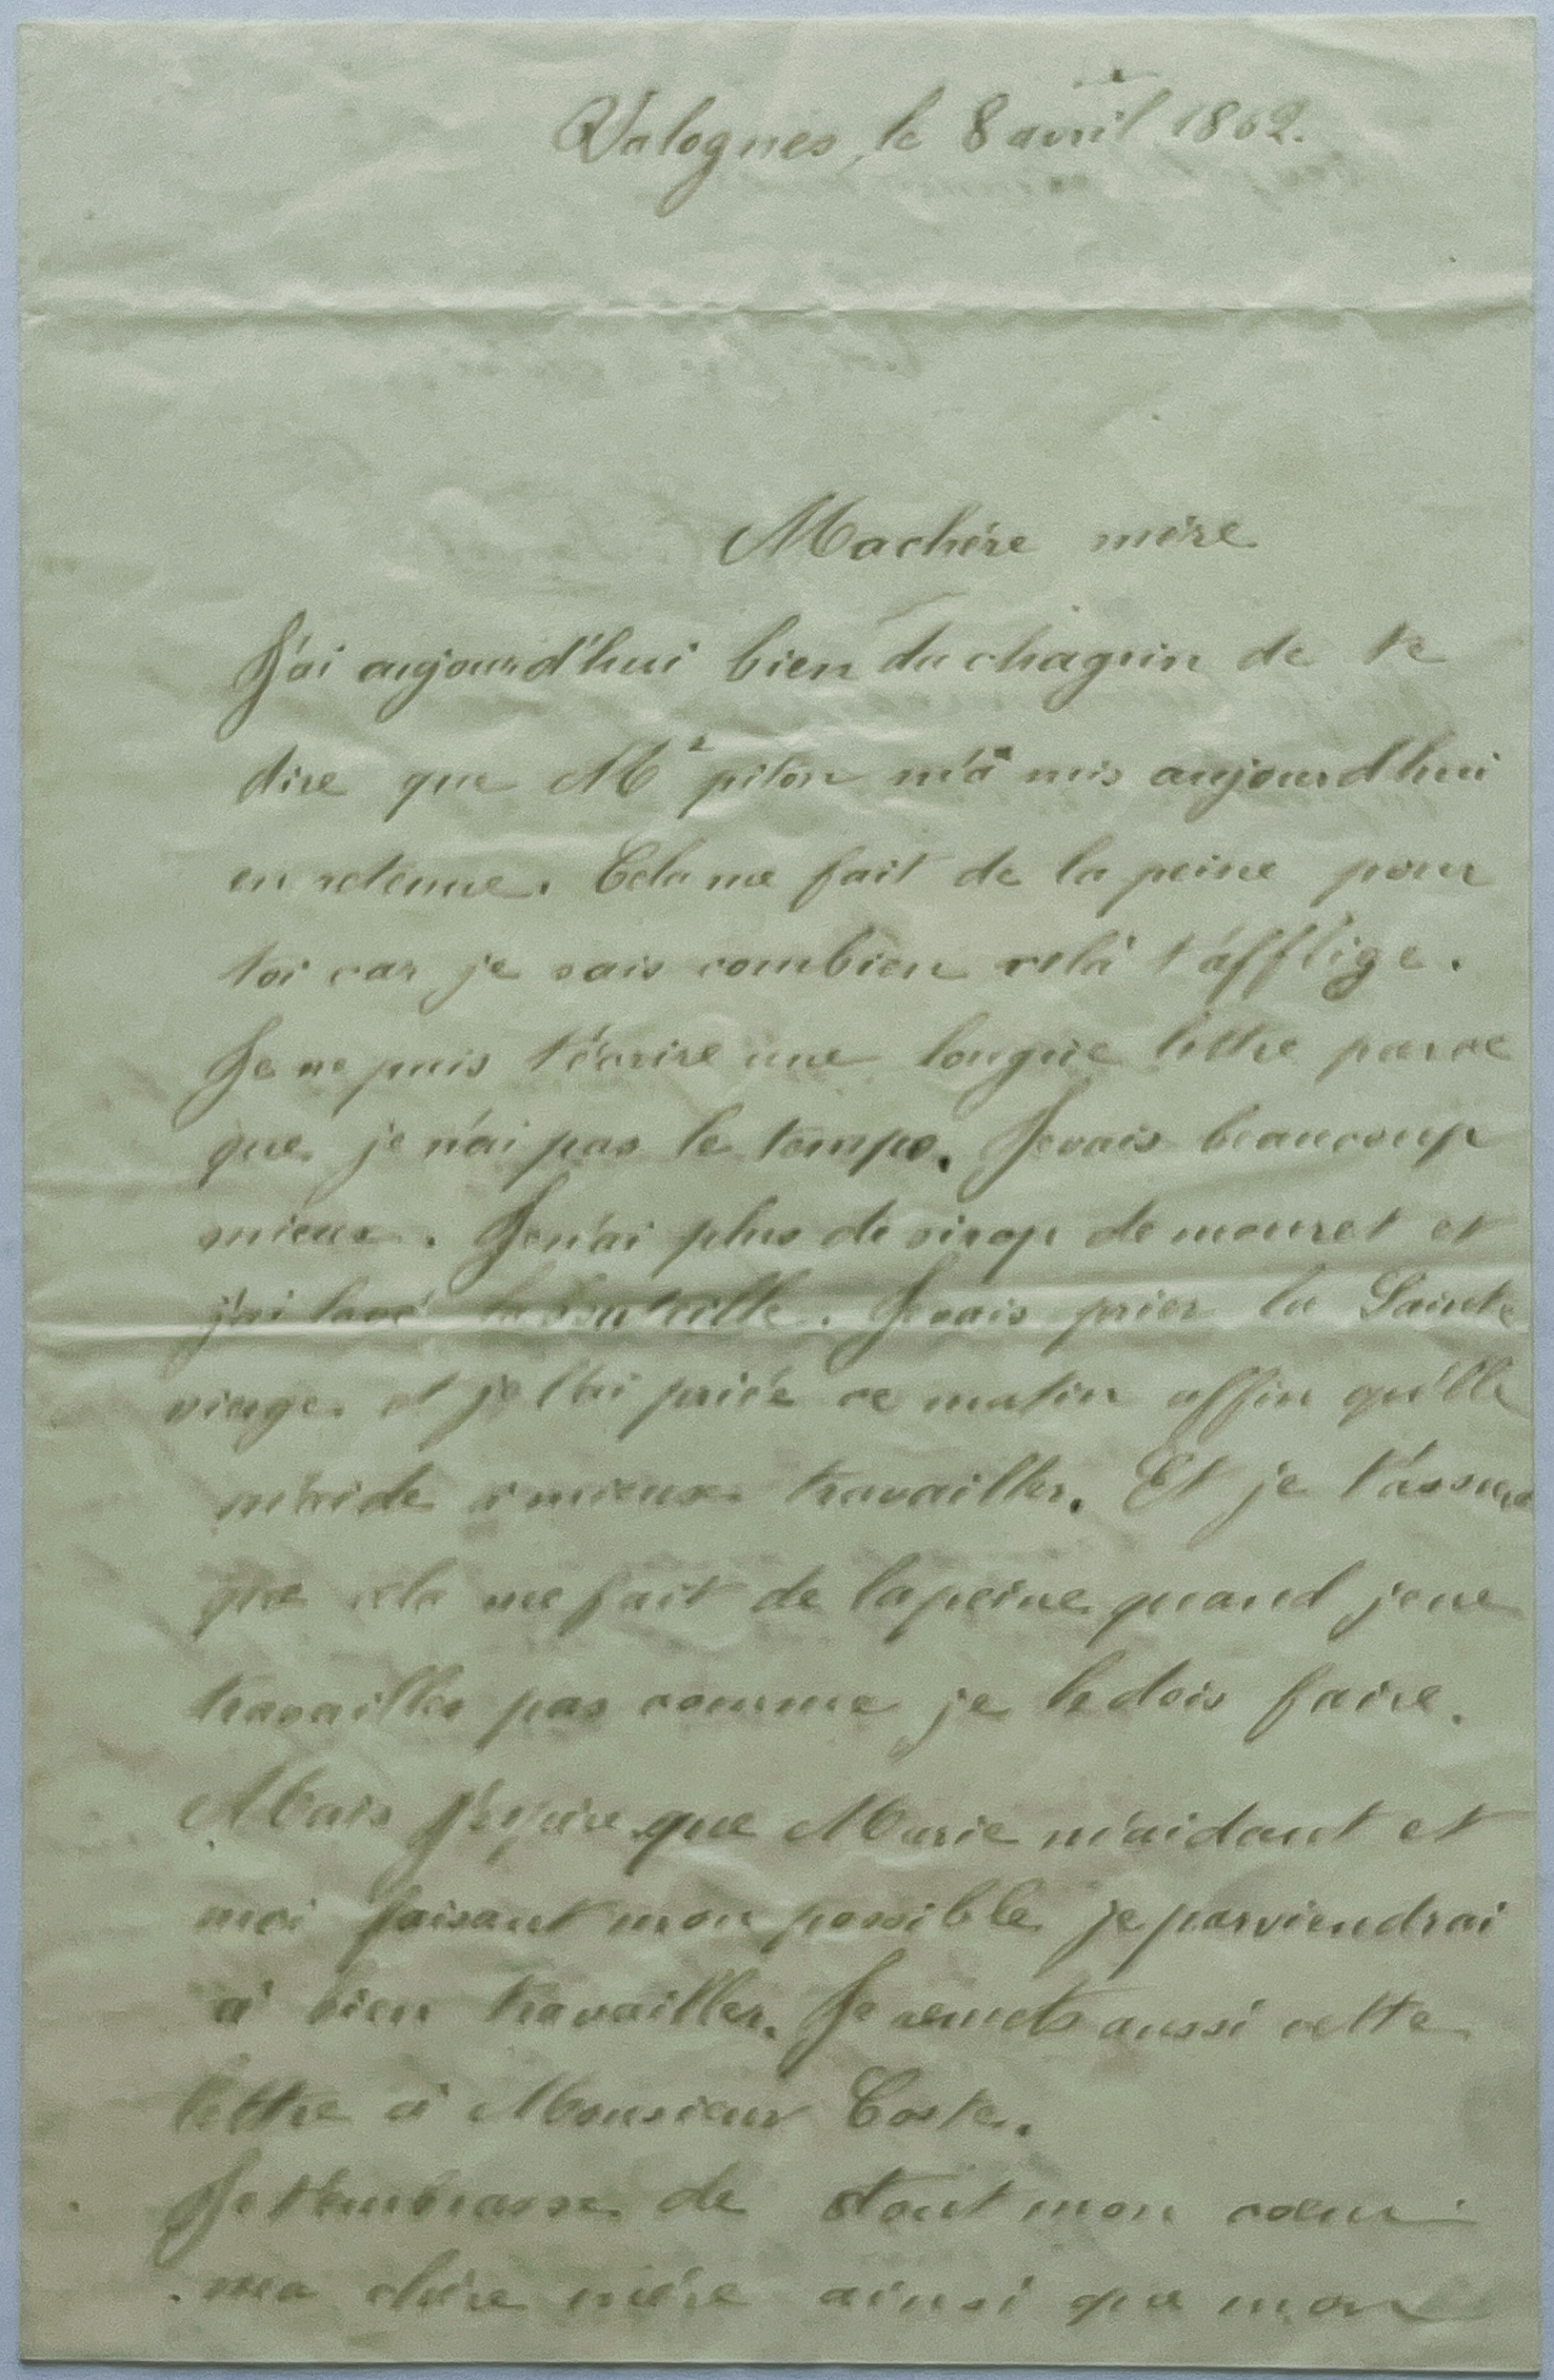 Valognes, le 8 avril 1862.
Ma chère mère
J'ai aujourd'hui bien du chagrin de te
dire que Mr piton m'a mis aujourd'hui
en retenue. Cela me fait de la peine pour
toi car je sais combien celà t'afflige.
Je ne puis t'écrire une longue lettre parce
que je n'ai pas le temps. Je vais beaucoup
mieux. Je n'ai plus de sirop de mouret et
j'ai lavé la bouteille. Je vais prier la Sainte
vierge et je l'ai priée ce matin affin qu'elle
m'aide à mieux travailler. Et je t'assure
que cela me fait de la peine quand je ne
travailles pas comme je le dois faire.
Mais j'espère que Marie m'aidant et
moi faisant mon possible je parviendrai
à bien travailler. Je remets aussi cette
lettre à Monsieur Coste.
Je t'embrasse de tout mon cœur
ma chère mère ainsi que mon